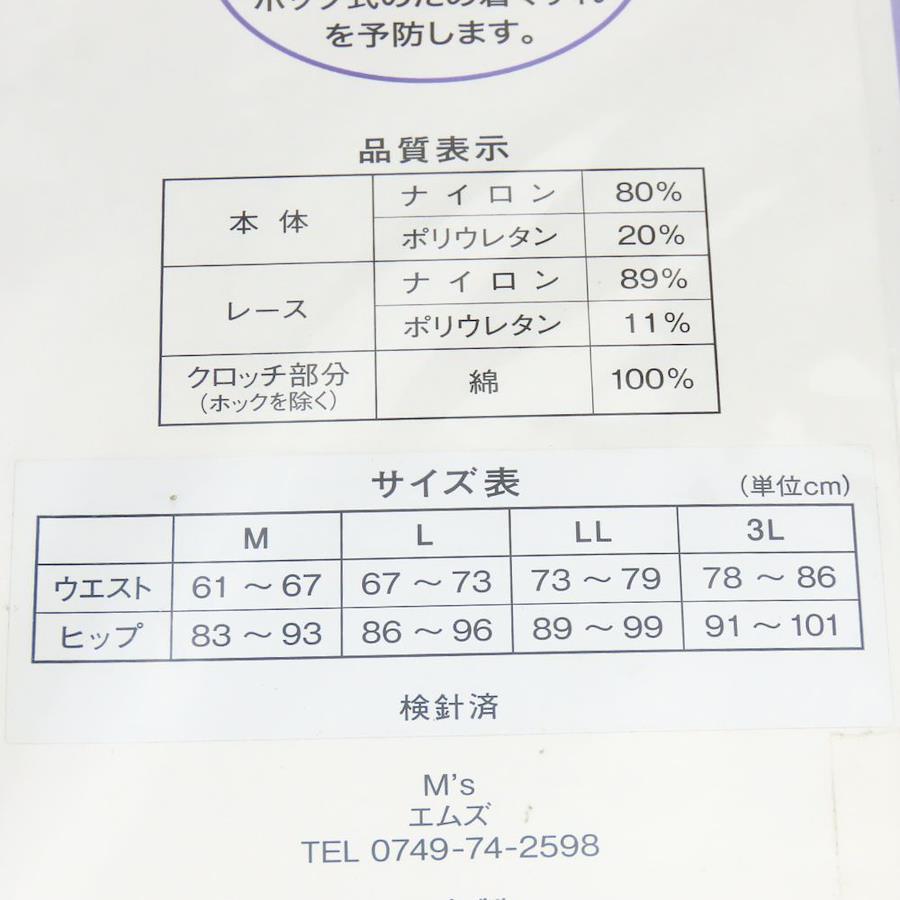 を予防します。
品質表示
本体 ナイロン 80%
ポリウレタン 20%
レース ナイロン 89%
ポリウレタン 11%
クロッチ部分 綿 100%
(ホックを除く)
サイズ表 (単位cm)
M L LL 3L
ウエスト 61～67 67～73 73～79 78～86
ヒップ 83～93 86～96 89～99 91～101
検針済
M's
エムズ
TEL 0749-74-2598